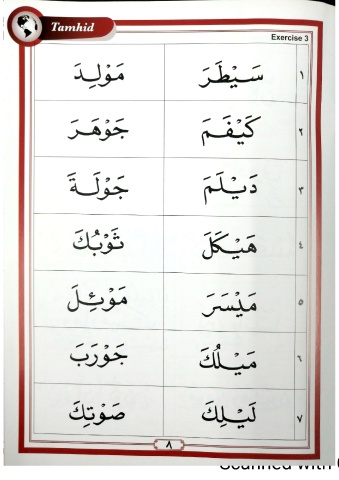 Tamhid
Exercise 3
١ سَيْطَرَ مَوْلِدَ
٢ كَيْفَمَ جَوْهَرَ
٣ دَيْلَمَ جَوْلَةَ
٤ هَيْكَلَ ثَوْبُكَ
٥ مَيْسَرَ مَوْئِلَ
٦ مَيْلُكَ جَوْرَبَ
٧ لَيْلِكَ صَوْتِكَ
٨
Scanned with